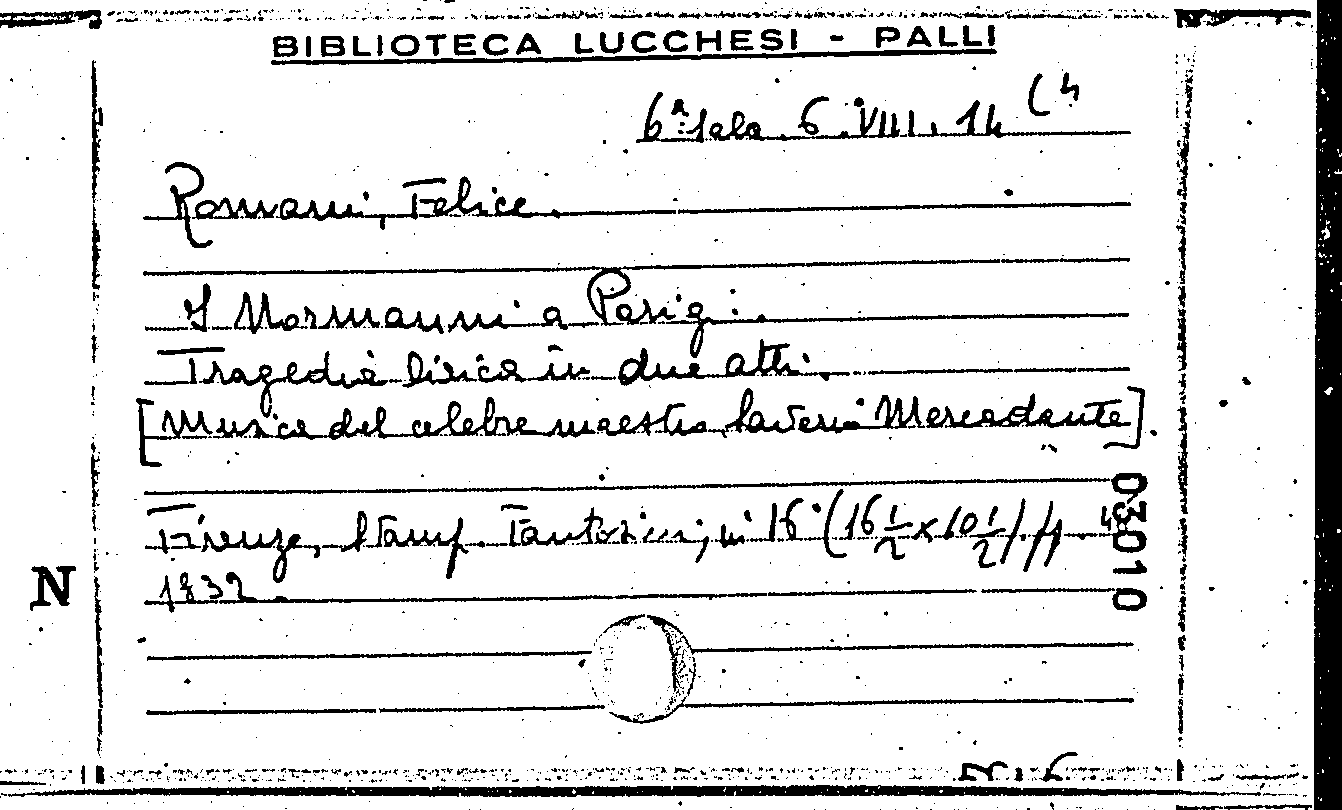 BIBLIOTECA LUCCHESI - PALLI
6ª Sala. 6. VIII. 14 (4
Romani, Felice.
I Normanni a Parigi.
Tragedia lirica in due atti.
[Musica del celebre maestro Saverio Mercadante].
Firenze, Stamp. Fantosini, in 16° (16 1/2 x 10 1/2), pp.
1832.
03010
N